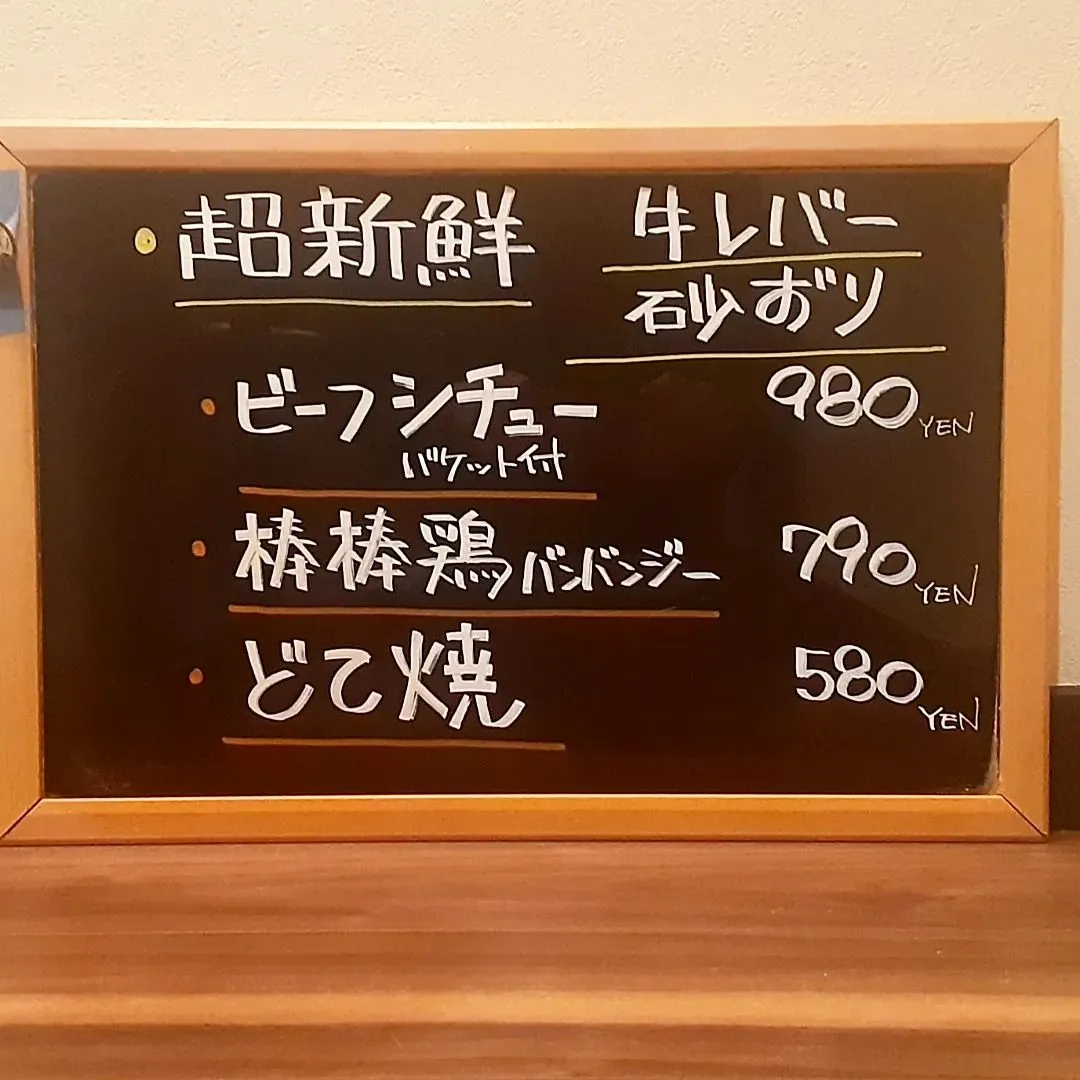 ・超新鮮 牛レバー
砂おり
・ビーフシチュー 980YEN
バケット付
・棒棒鶏バンバンジー 790YEN
・どて焼 580YEN